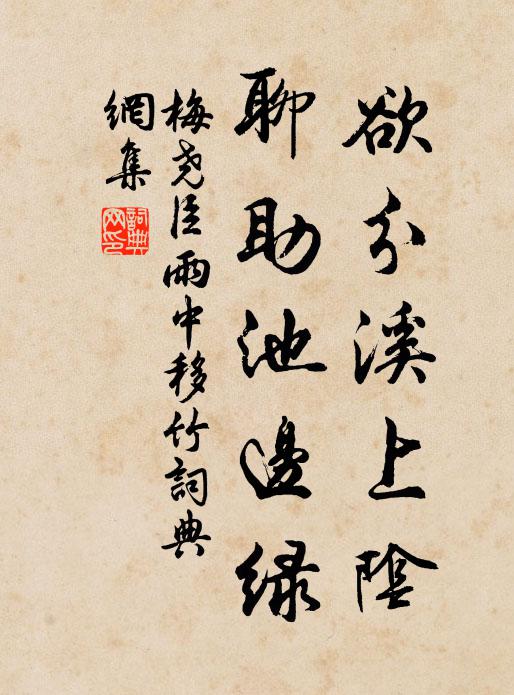 欲分溪上陰
聊助池邊緑
梅尧臣雨中移竹詞典
網集
詞典
网印